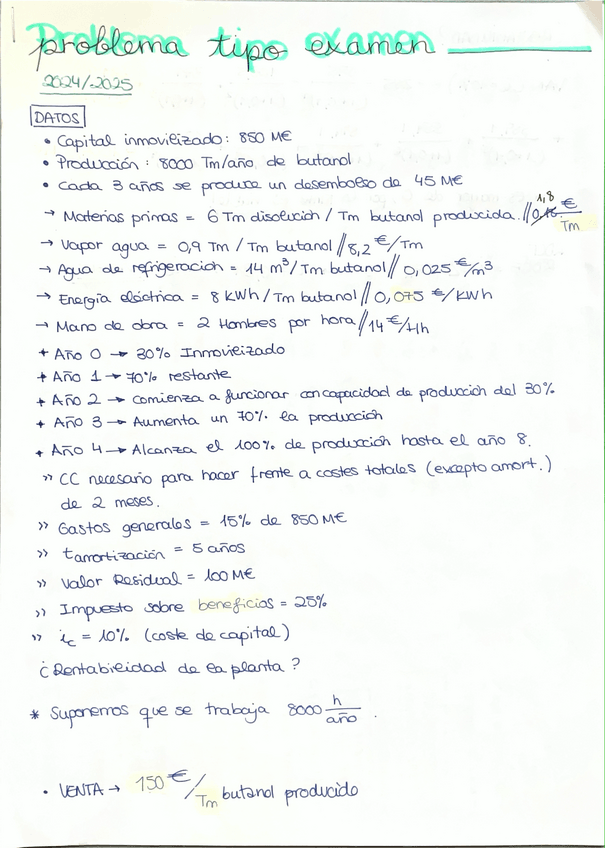 problema tipo examen
2024/2025
DATOS
• Capital inmovilizado: 850 M€
• Producción: 8000 Tm/año de butanol
• Cada 3 años se produce un desembolso de 45 M€
→ Materias primas = 6 Tm disolución / Tm butanol producida. // 1,8 €/Tm
→ Vapor agua = 0,9 Tm / Tm butanol // 8,2 €/Tm
→ Agua de refrigeración = 14 m³/Tm butanol // 0,025 €/m³
→ Energía eléctrica = 8 KWh/Tm butanol // 0,075 €/KWh
→ Mano de obra = 2 Hombres por hora // 14 €/Hh
+ Año 0 → 30% Inmovilizado
+ Año 1 → 70% restante
+ Año 2 → comienza a funcionar con capacidad de producción del 30%
+ Año 3 → Aumenta un 70% la producción
+ Año 4 → Alcanza el 100% de producción hasta el año 8.
» CC necesario para hacer frente a costes totales (excepto amort.)
de 2 meses.
» Gastos generales = 15% de 850 M€
» tamortización = 5 años
» Valor Residual = 100 M€
» Impuesto sobre beneficios = 25%
» ic = 10% (coste de capital)
¿Rentabilidad de la planta?
* Suponemos que se trabaja 8000 h/año.
• VENTA → 150 €/Tm butanol producido